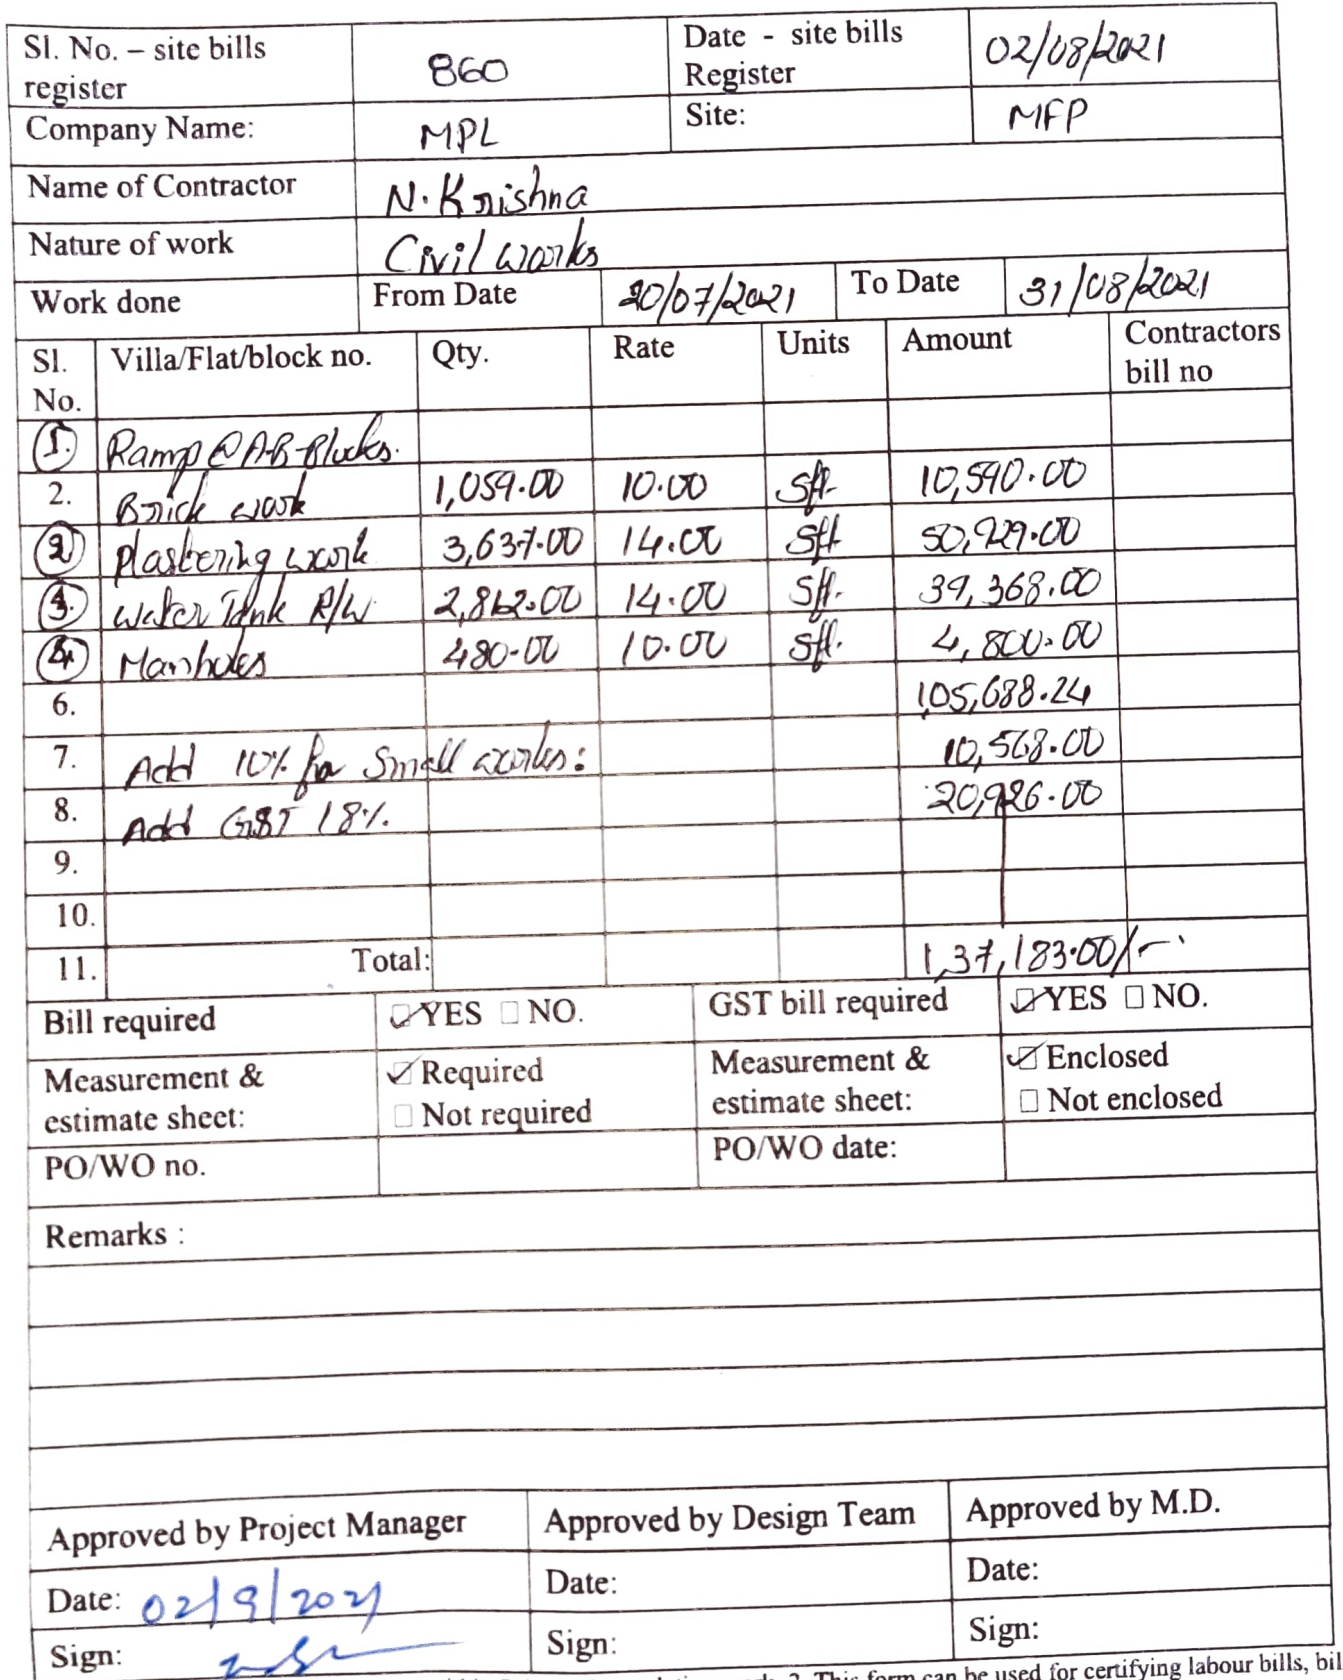 Sl. No. – site bills register 860 Date - site bills Register 02/08/2021
Company Name: MPL Site: MFP
Name of Contractor N. Krishna
Nature of work Civil works
Work done From Date 20/07/2021 To Date 31/08/2021
Sl. No. Villa/Flat/block no. Qty. Rate Units Amount Contractors bill no
1. Ramp @ A-B-Blocks.
2. Brick work 1,059.00 10.00 Sft. 10,590.00
Plastering work 3,637.00 14.00 Sft 50,929.00
3. Water Tank P/W. 14.00 Sft. 39,368.00
Manholes 480.00 10.00 Sft. 4,800.00
6. 1,05,688.24
7. Add 10% for Small works: 10,568.00
8. Add GST 18%. 20,926.00
9.
10.
11. Total: 1,37,183.00/-
Bill required YES NO. GST bill required YES NO.
Measurement & estimate sheet: Required Not required Measurement & estimate sheet: Enclosed Not enclosed
PO/WO no. PO/WO date:
Remarks :
Approved by Project Manager Approved by Design Team Approved by M.D.
Date: 02/9/2021 Date: Date:
Sign: Sign: Sign:
This form can be used for certifying labour bills,